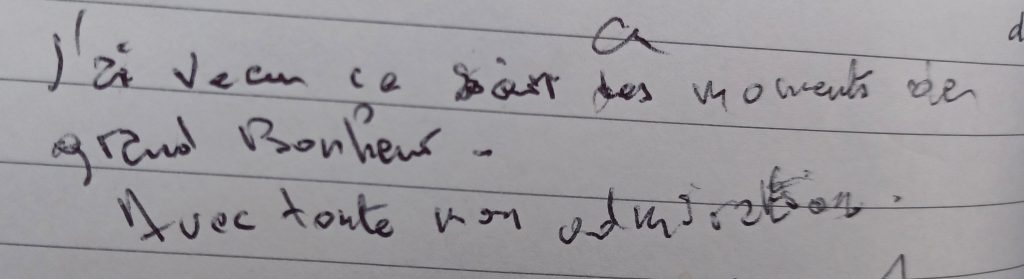 J'ai vecu ce soir des moments de
grand Bonheur.
Avec toute mon admiration.